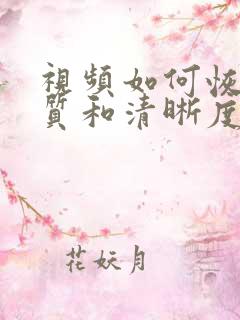 視頻如何恢
質和清晰度
花妖月